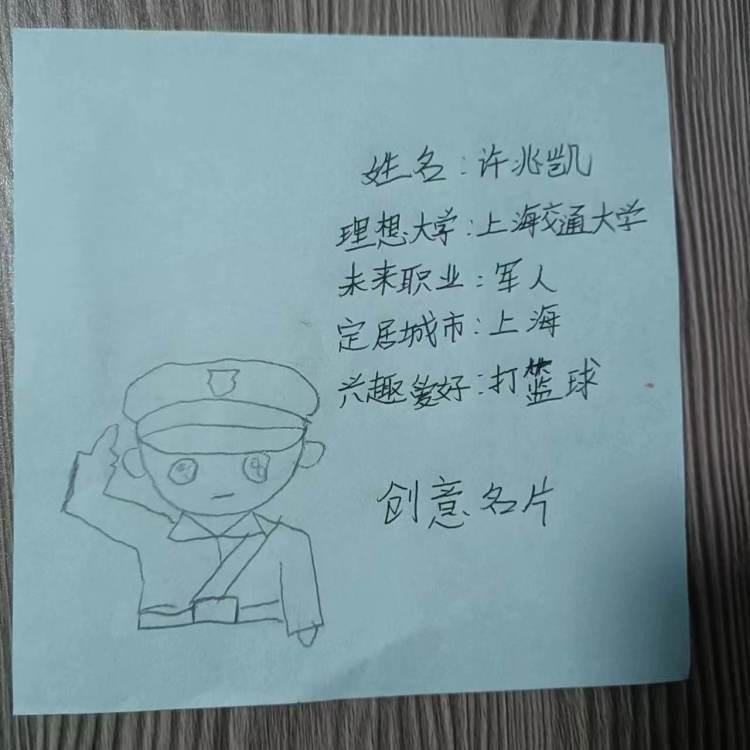 姓名:许兆凯
理想大学:上海交通大学
未来职业:军人
定居城市:上海
兴趣爱好:打篮球
创意名片